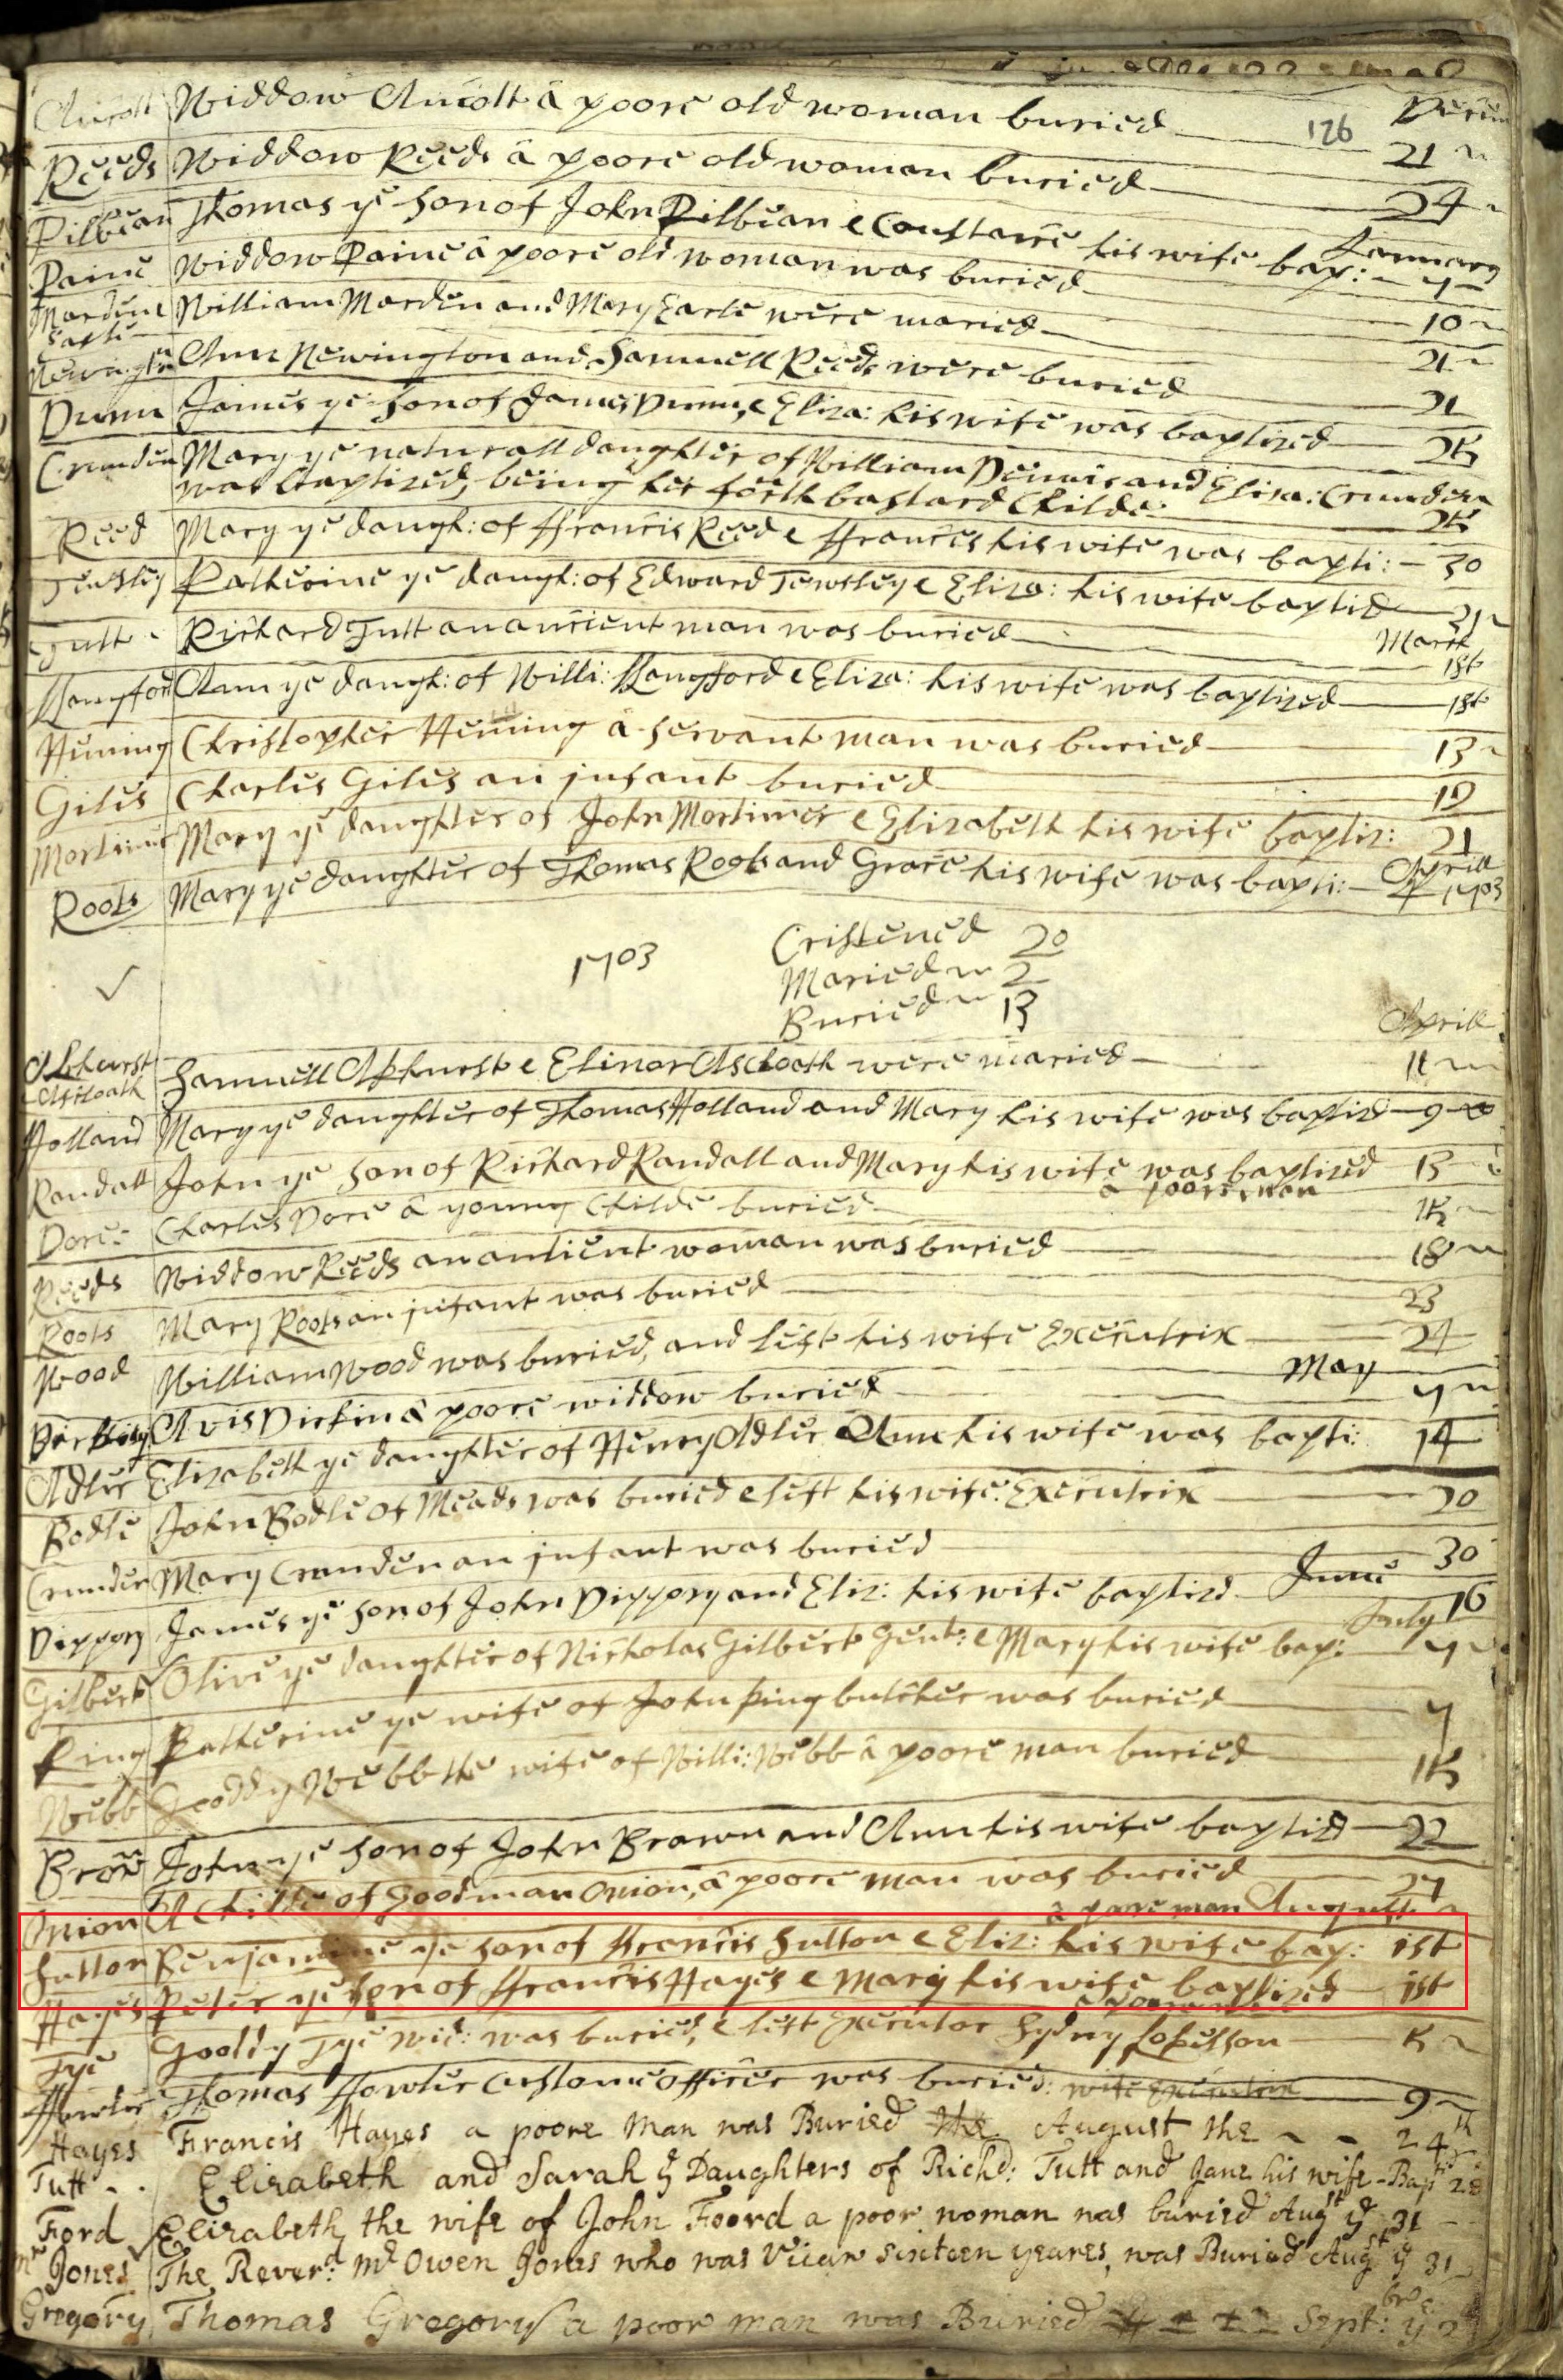 126
Widdow Aucolt â poore old woman buried
Reeds Widdow Reeds â poore old woman buried 21
24
Pilbean Thomas ye son of John Pilbean e Constance his wife bap: January 7
Paine Widdow Paine â poore old woman was buried 10
Marden Earle William Marden and Mary Earle were maried 21
Newington Ann Newington and Samuell Reeds were buried 21
Dunn James ye son of James Dunn, e Eliza: his wife was baptized 25
Crunden Mary ye naturall daughter of William Dennis and Eliza: Crunden
was baptized, being her forth bastard Childe 25
Reed Mary ye daugh: of ffrancis Reed e ffrances his wife was bapti: 30
Tewsley Katherine ye daugh: of Edward Tewsley e Eliza: his wife baptizd 31
Tutt Richard Tutt an ancient man was buried March 1st
Langford Ann ye daugh: of Willi: Langford e Eliza: his wife was baptized 1st
Heming Christopher Heming â servant man was buried 13
Giles Charles Giles an jnfant buried 19
Mortimer Mary ye daughter of John Mortimer e Elizabeth his wife baptiz: 21
Roots Mary ye daughter of Thomas Roots and Grace his wife was bapti: Aprill 4 1703
1703 Cristened 20
Maried 2
Buried 13
Aprill
Samuell Akhurst e Elinor Ascloath were maried 11
Holland Mary ye daughter of Thomas Holland and Mary his wife was baptizd 9
Randall John ye son of Richard Randall and Mary his wife was baptized 13
a poore man
Dore Charles Dore â young Childe buried 15
Reeds Widdow Reeds an antient woman was buried 18
Roots Mary Roots an jnfant was buried 23
Wood William Wood was buried, and left his wife Executrix 24
May
Avis Dirkin â poore widdow buried 7
Adler Elizabeth ye daughter of Henry Adler e Ann his wife was bapti: 14
Bodle John Bodle of Meads was buried e left his wife Executrix 20
Crunden Mary Crunden an jnfant was buried 30
Dippory James ye son of John Dippory and Eliz: his wife baptizd June 16
Gilbert Olive ye daughter of Nicholas Gilbert Gent: e Mary his wife bap: July 7
King Katherine ye wife of John King butcher was buried 7
Webb Gooddy Webb the wife of Willi: Webb â poore man buried 15
Brown John ye son of John Brown and Ann his wife baptizd 22
Onion A Childe of Goodman Onion, â poore man was buried 27
a pore man August
Sutton Benjamine ye son of ffrancis Sutton e Eliz: his wife bap: 1st
Hayes Peter ye son of ffrancis Hayes e Mary his wife baptized 1st
Tye Gooddy Tye wid: was buried, e left Executor Sydny 5
Thomas ffowler Custome officer was buried: wife Executrix 9
Hayes Francis Hayes a poore man was Buried the August the 24th
Tutt Elizabeth and Sarah ye Daughters of Richd: Tutt and Jane his wife Bapt 28
Ford Elizabeth the wife of John Foord a poor woman was buried Augst ye 31
Mr Jones The Reverd: Mr Owen Jones who was Vicar sixteen yeares, was Buried Augst ye 31
Gregory Thomas Gregory a poor man was Buried Septbr: ye 2